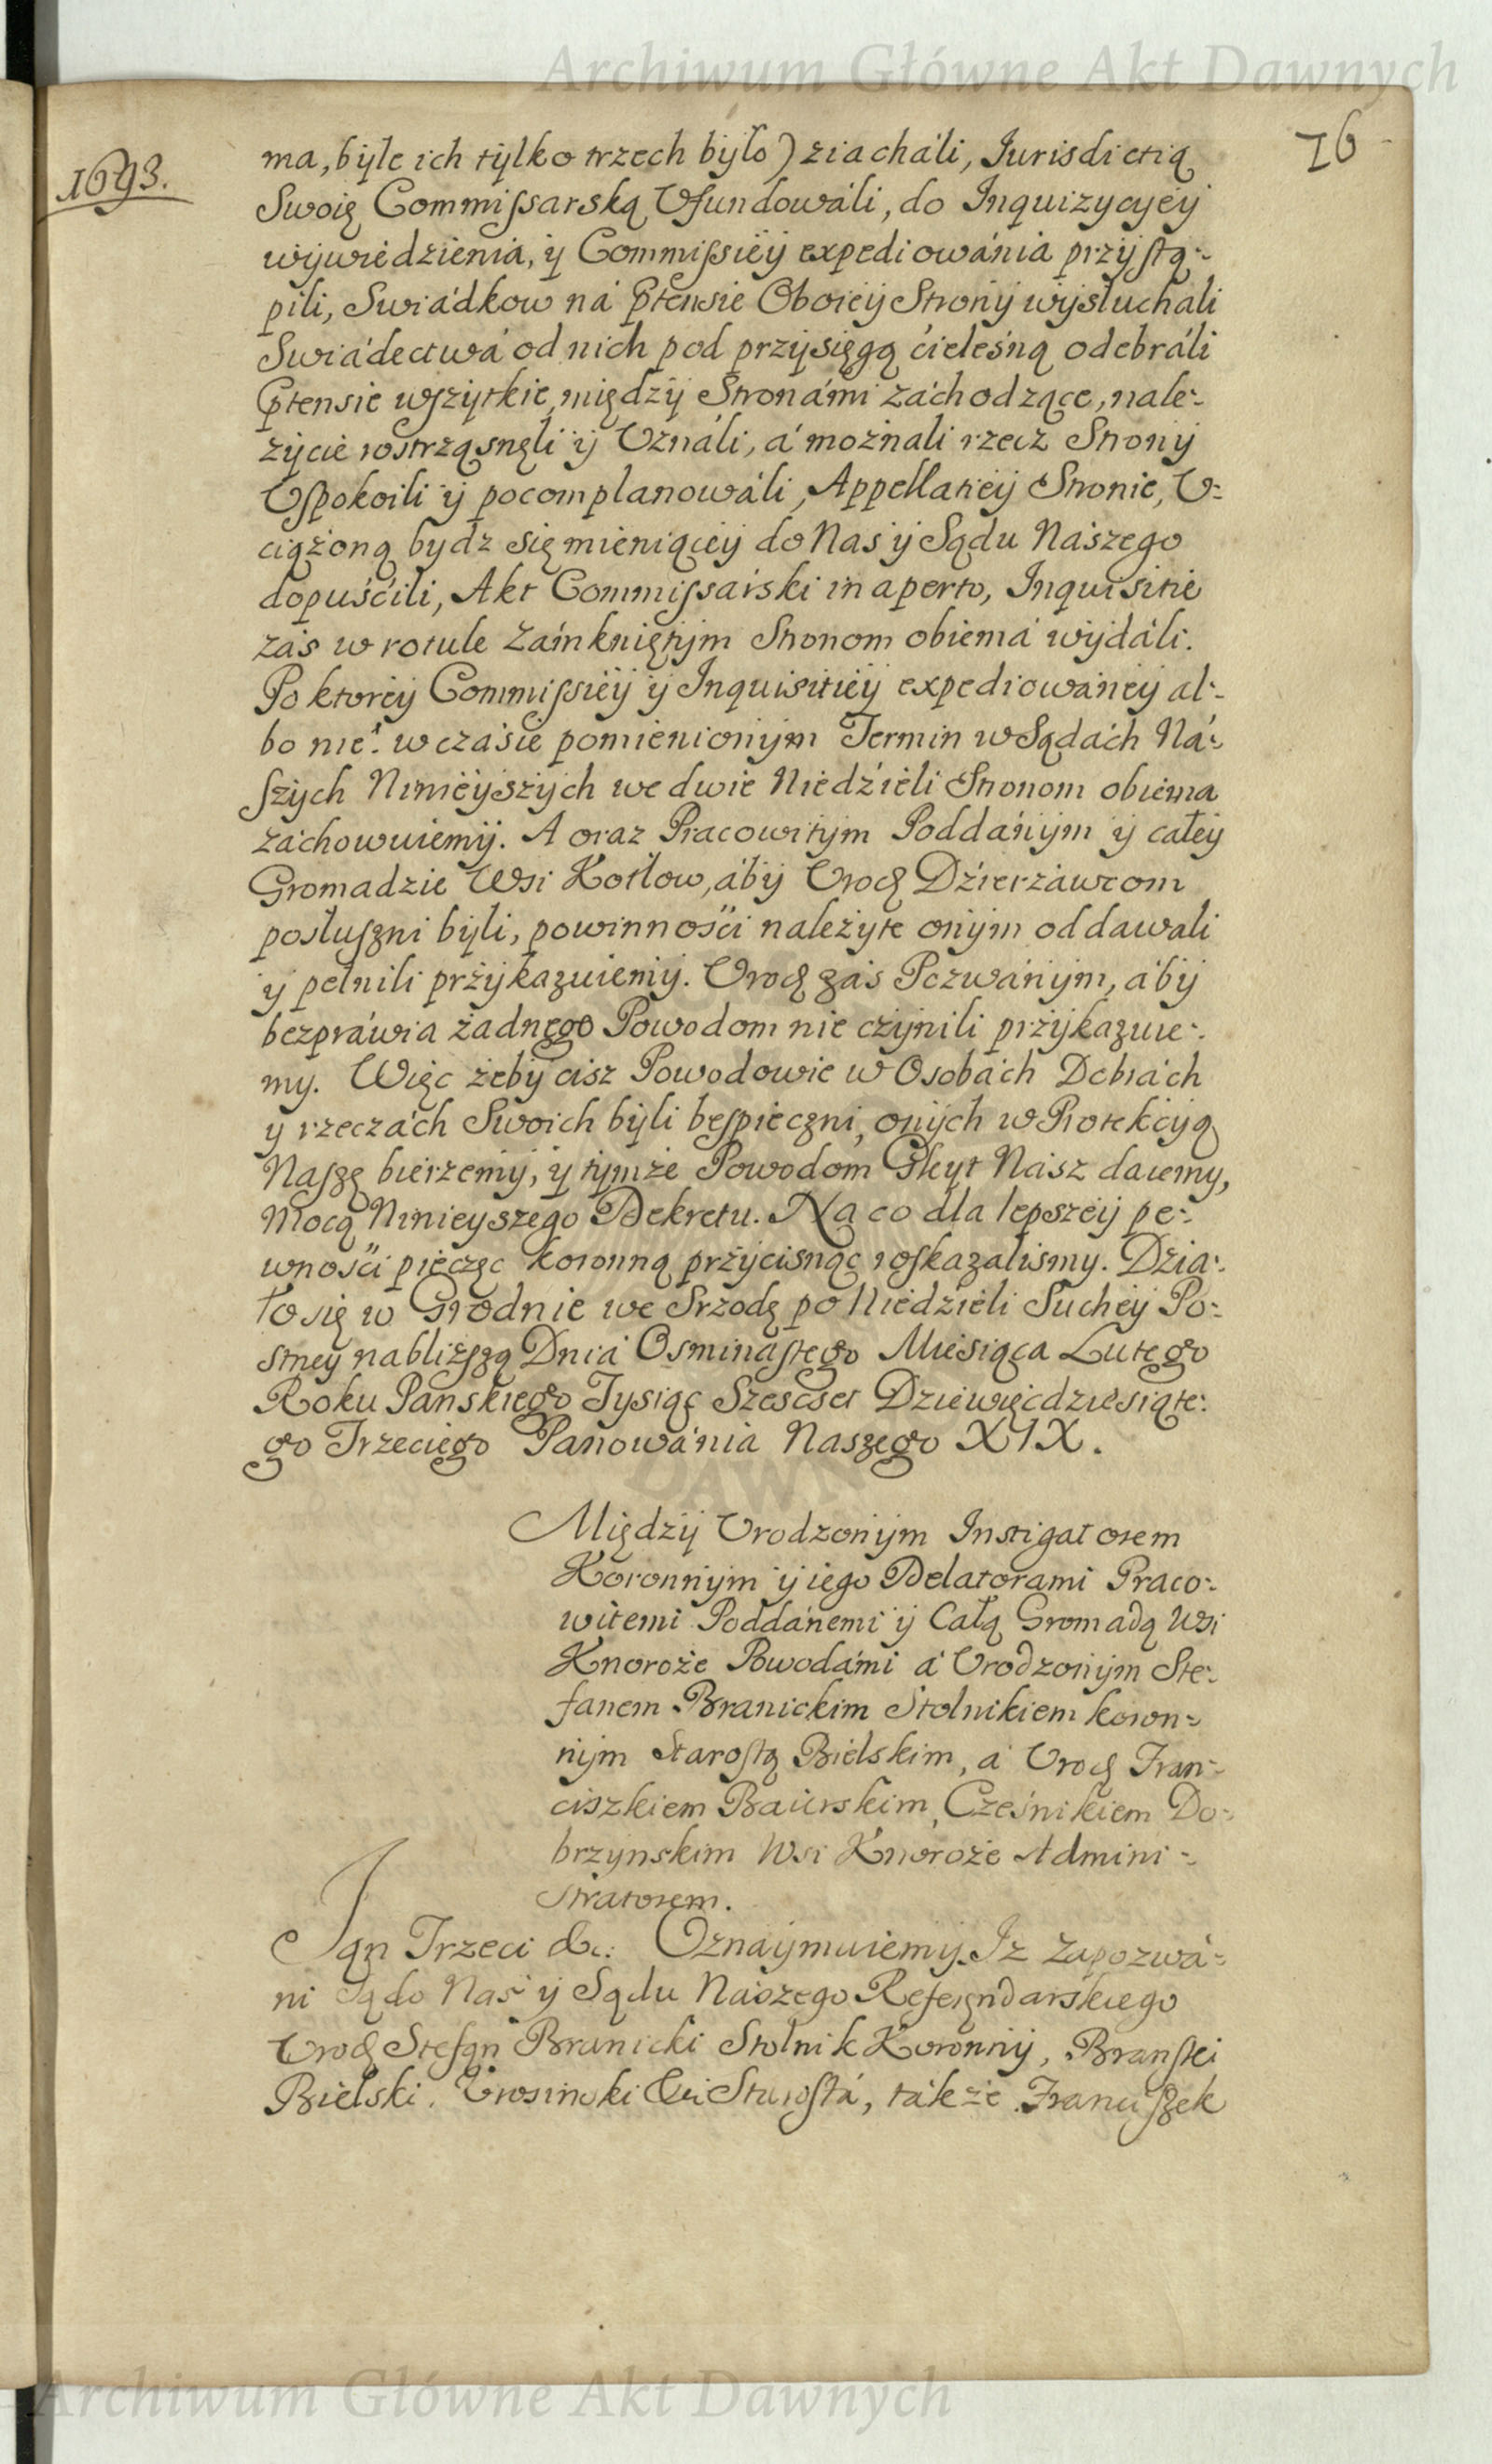 Archiwum Główne Akt Dawnych
76
1693.
ma, byle ich tylko trzech było) ziacháli, Jurisdictią
Swoię Commissarską Vfundowáli, do Inquizycyey
wywiedzienia, y Commissiey expediowánia przystą-
pili, Swiádkow ná Ptensie Oboiey Strony wysłuchali
Swiádectwá od nich pod przysięgą ćieleśną odebráli
Ptensie wszytkie między Stronámi záchodzące, nale-
życie rostrząsnęli y Vználi, á możnali rzecz Strony
Vspokoili y pocomplanowáli, Appellatiey Stronie, V-
ciążoną bydz się mieniącey do Nas y Sądu Naszego
dopuśćili, Akt Commissarski in aperto, Inquisitie
zás w rotule zámkniętym Stronom obiemá wydáli.
Po ktorey Commissiey y Inquisitiey expediowáney al-
bo nie: w czásie pomienionym Termin w Sądách Ná-
szych Ninieyszych we dwie Niedźieli Stronom obiema
záchowuiemy. A oraz Pracowitym Poddánym y całey
Gromadzie Wsi Kotłow, áby Urod Dźierżáwcom
posłuszni byli, powinnośći należyte onym oddawali
y pełnili przykazuiemy. Urod zás Pozwánym, áby
bezpráwia żadnego Powodom nie czynili przykazuie-
my. Więc żeby cisz Powodowie w Osobách Dobrách
y rzeczách Swoich byli bespieczni, onych w Protekcyą
Naszę bierzemy, y tymże Powodom Gleyt Nasz daiemy,
mocą Ninieyszego Dekretu. Na co dla lepszey pe-
wnośći pieczęc koronną przycisnąc roskazalismy. Dźia-
ło się w Grodnie we Srzodę po Niedźieli Suchey Po-
stney nabliższą Dniá Osminástego Miesiąca Lutego
Roku Panskiego Tysiąc Szescset Dziewięcdziesiąte-
go Trzeciego Panowánia Naszego XIX.
Między Urodzonym Instigatorem
Koronnym y iego Delatorami Praco-
witemi Poddánemi y Całą Gromadą Wsi
Knoroże Powodámi á Urodzonym Ste-
fanem Branickim Stolnikiem koron-
nym Starostą Bielskim, á Urod Fran-
ciszkiem Baierskim, Cześnikiem Do-
brzynskim Wsi Knoroże Admini-
stratorem.
Jan Trzeci &c: Oznáymuiemy Iz zapozwá-
ni są do Nas y Sądu Naszego Referendarskiego
Urod Stefan Branicki Stolnik Koronny, Branski
Bielski, Krosinski &c Starostá, tákże Franciszek
Archiwum Główne Akt Dawnych